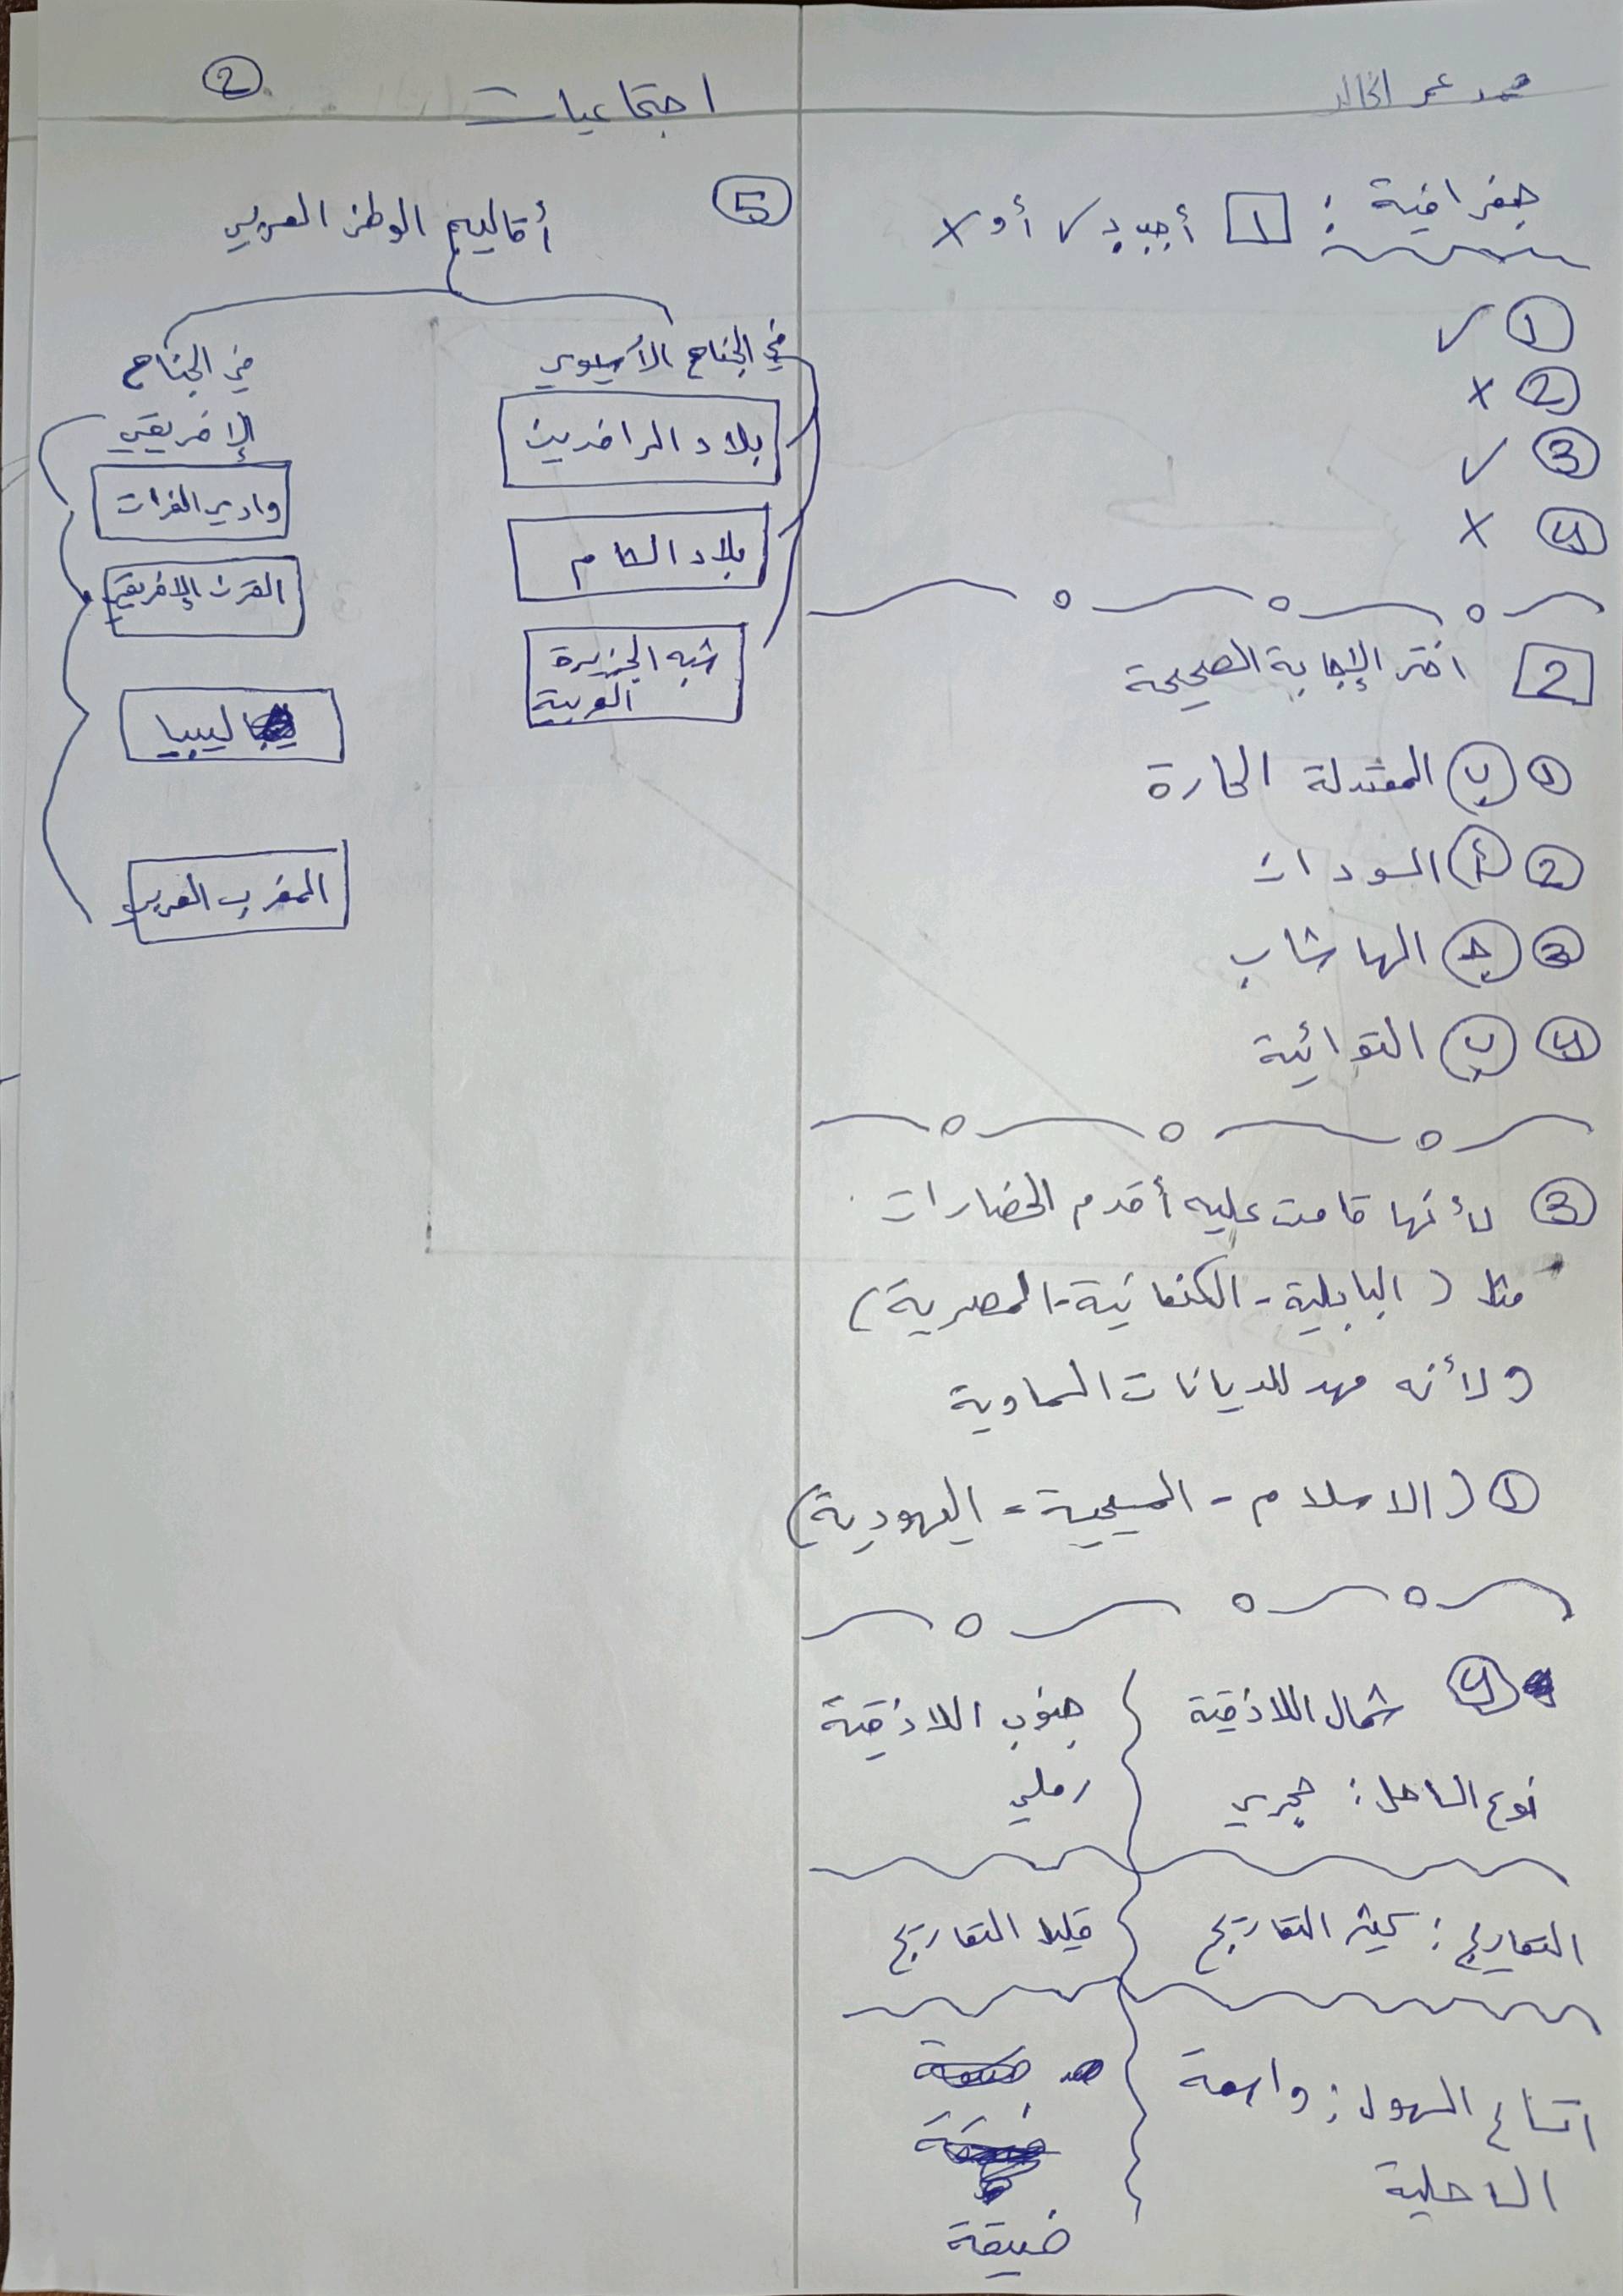 محمد عمر الخالد
اجتماعيات
2
جغرافية : 1 أجب بـ ✓ أو ✗
1 ✓
2 ✗
3 ✓
4 ✗
2 اختر الإجابة الصحيحة
1 ب المعتدلة الحارة
2 أ السودان
3 ج الهاشاب
4 ب التوائية
3 لأنها قامت عليه أقدم الحضارات
مثل ( البابلية - الكنعانية - المصرية )
ولأنه مهد للديانات السماوية
1 ( الاسلام - المسيحية - اليهودية )
4 شمال اللاذقية
جنوب اللاذقية
نوع الساحل : حجري
رملي
التعاريج : كثير التعاريج
قليل التعاريج
اتساع السهول : واسعة
الساحلية
ضيقة
5 أقاليم الوطن العربي
في الجناح الأسيوي
بلاد الرافدين
بلاد الشام
شبه الجزيرة
العربية
في الجناح
الإفريقي
وادي الفرات
القرن الإفريقي
ليبيا
المغرب العربي